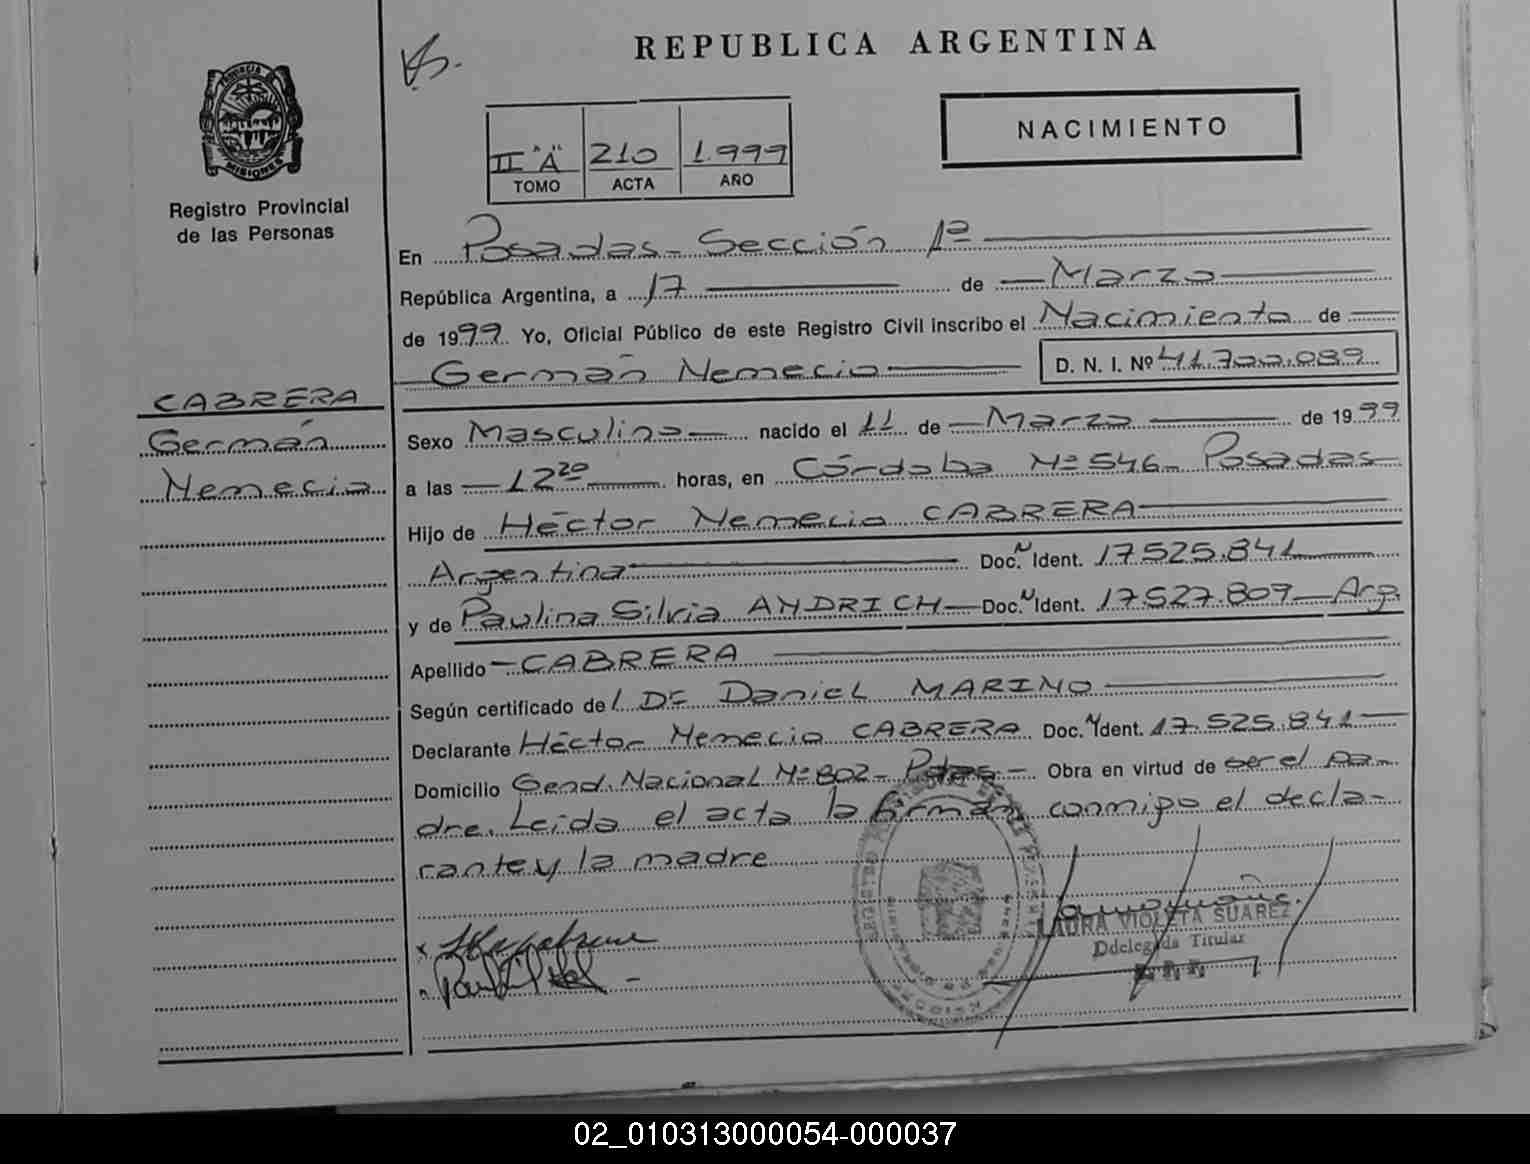 REPUBLICA ARGENTINA
PROVINCIA DE MISIONES
Registro Provincial
de las Personas
NACIMIENTO
II "A" 210 1.999
TOMO ACTA AÑO
CABRERA
Germán
Nemecio
En Posadas - Sección 1ª
República Argentina, a 17 de Marzo
de 1999. Yo, Oficial Público de este Registro Civil inscribo el Nacimiento de
Germán Nemecio D. N. I. Nº 41.700.089
Sexo Masculino nacido el 11 de Marzo de 1999
a las 12 20 horas, en Córdoba Nº 546 - Posadas
Hijo de Héctor Nemecio CABRERA
Argentino Doc. N Ident. 17.525.841
y de Paulina Silvia ANDRICH Doc. N Ident. 17.527.809 Arg.
Apellido CABRERA
Según certificado del Dr Daniel MARINO
Declarante Héctor Nemecio CABRERA Doc. N Ident. 17.525.841
Domicilio Gend. Nacional Nº 802 - Pdas - Obra en virtud de ser el pa-
dre. Leida el acta la firman conmigo el decla-
rante y la madre
LAURA VIOLETA SUAREZ
Ddelegada Titular
R.P.P.
02_010313000054-000037